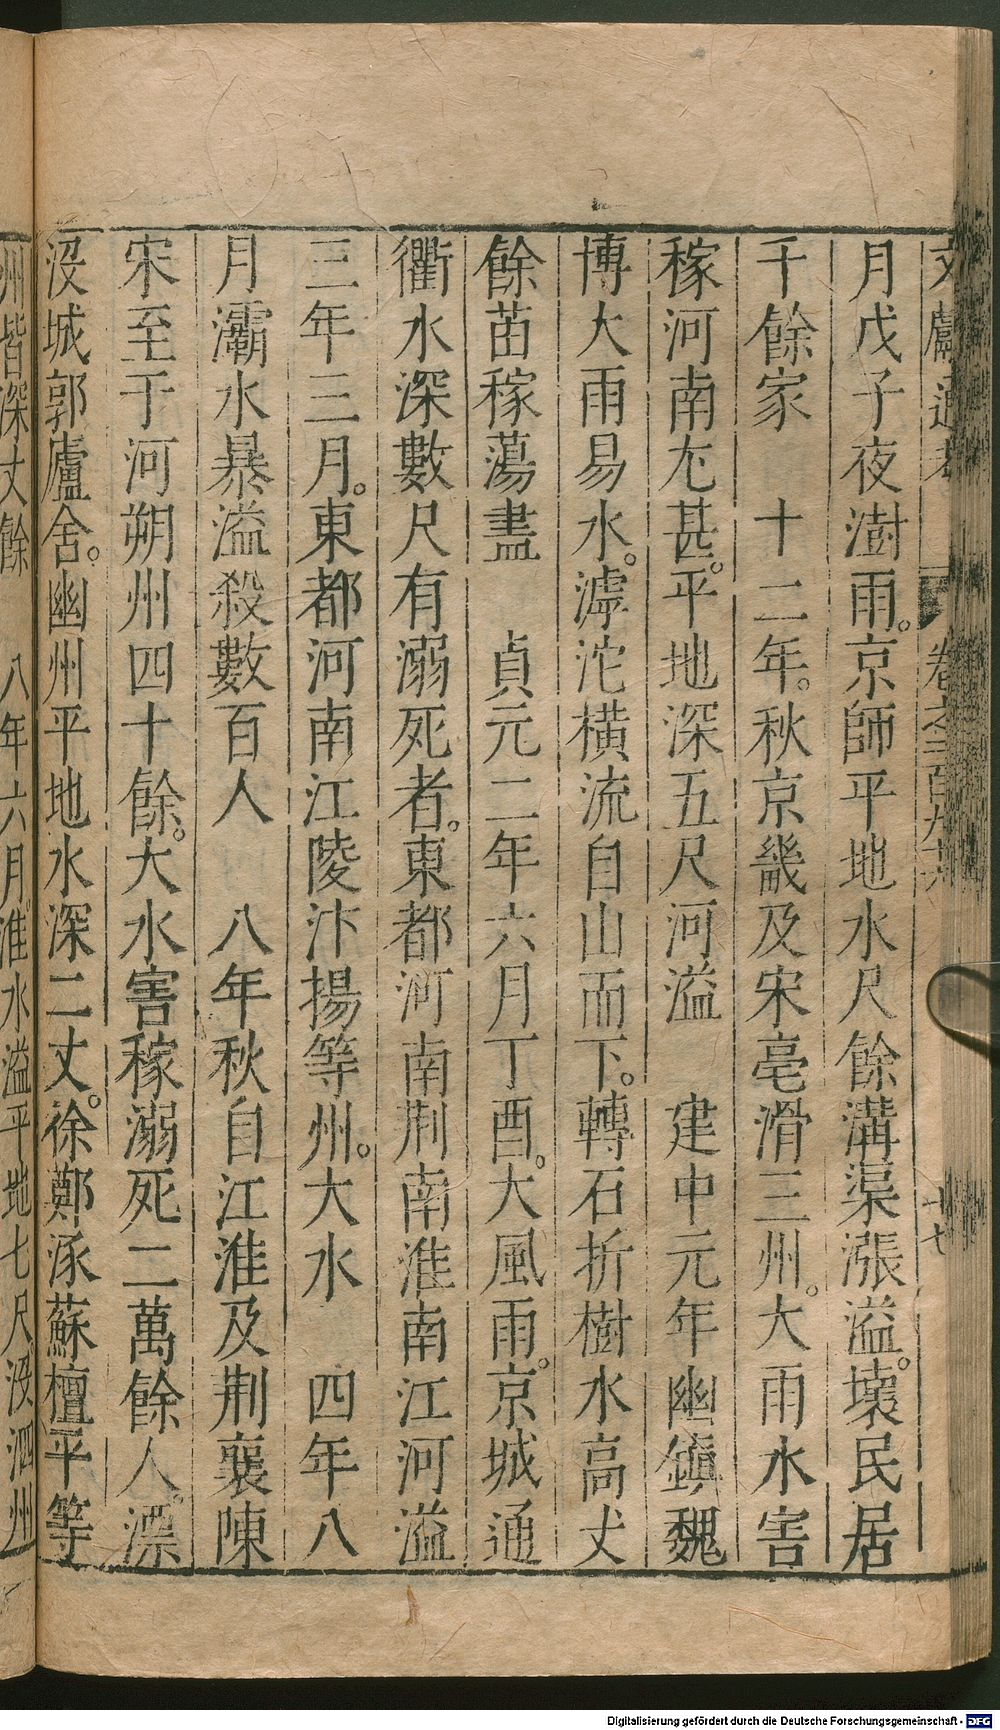 月戊子夜澍雨。京師平地水尺餘溝渠漲溢。壞民居
千餘家　十二年。秋京畿及宋亳滑三州。大雨水害
稼河南尤甚。平地深五尺河溢　建中元年幽鎮魏
博大雨易水。滹沱橫流自山而下。轉石折樹水高丈
餘苗稼蕩盡　貞元二年六月丁酉。大風雨。京城通
衢水深數尺有溺死者。東都河南荆南淮南江河溢
三年三月。東都河南江陵汴揚等州。大水　四年八
月灞水暴溢殺數百人　八年秋自江淮及荆襄陳
宋至于河朔州四十餘。大水害稼溺死二萬餘人。漂
沒城郭廬舍。幽州平地水深二丈。徐鄭涿蘇檀平等
州皆深丈餘　八年六月淮水溢平地七尺。沒泗州
卷之二百九十六
十七
Digitalisierung gefördert durch die Deutsche Forschungsgemeinschaft - DFG